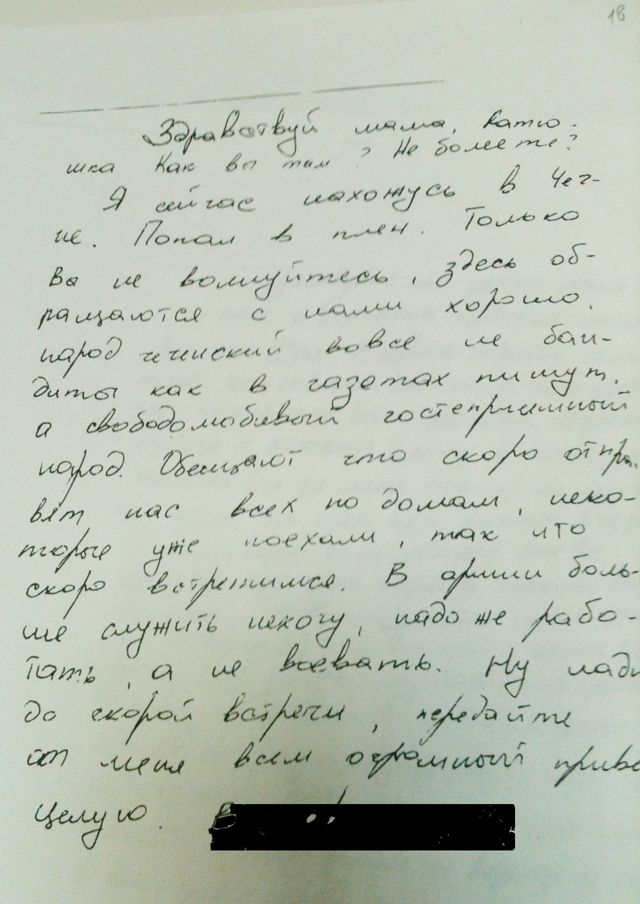 18
Здравствуй мама, Катю-
шка Как вы там? Не болеете?
Я сейчас нахожусь в Чеч-
не. Попал в плен. Только
Вы не волнуйтесь, здесь об-
ращаются с нами хорошо.
народ чеченский вовсе не бан-
диты как в газетах пишут,
а свободолюбивый гостеприимный
народ. Обещают что скоро отпра
вят нас всех по домам, неко-
торые уже поехали, так что
скоро встретимся. В армии боль-
ше служить нехочу, надо же рабо-
тать, а не воевать. Ну ладн
до скорой встречи, передайте
от меня всем огромный приве
целую. В